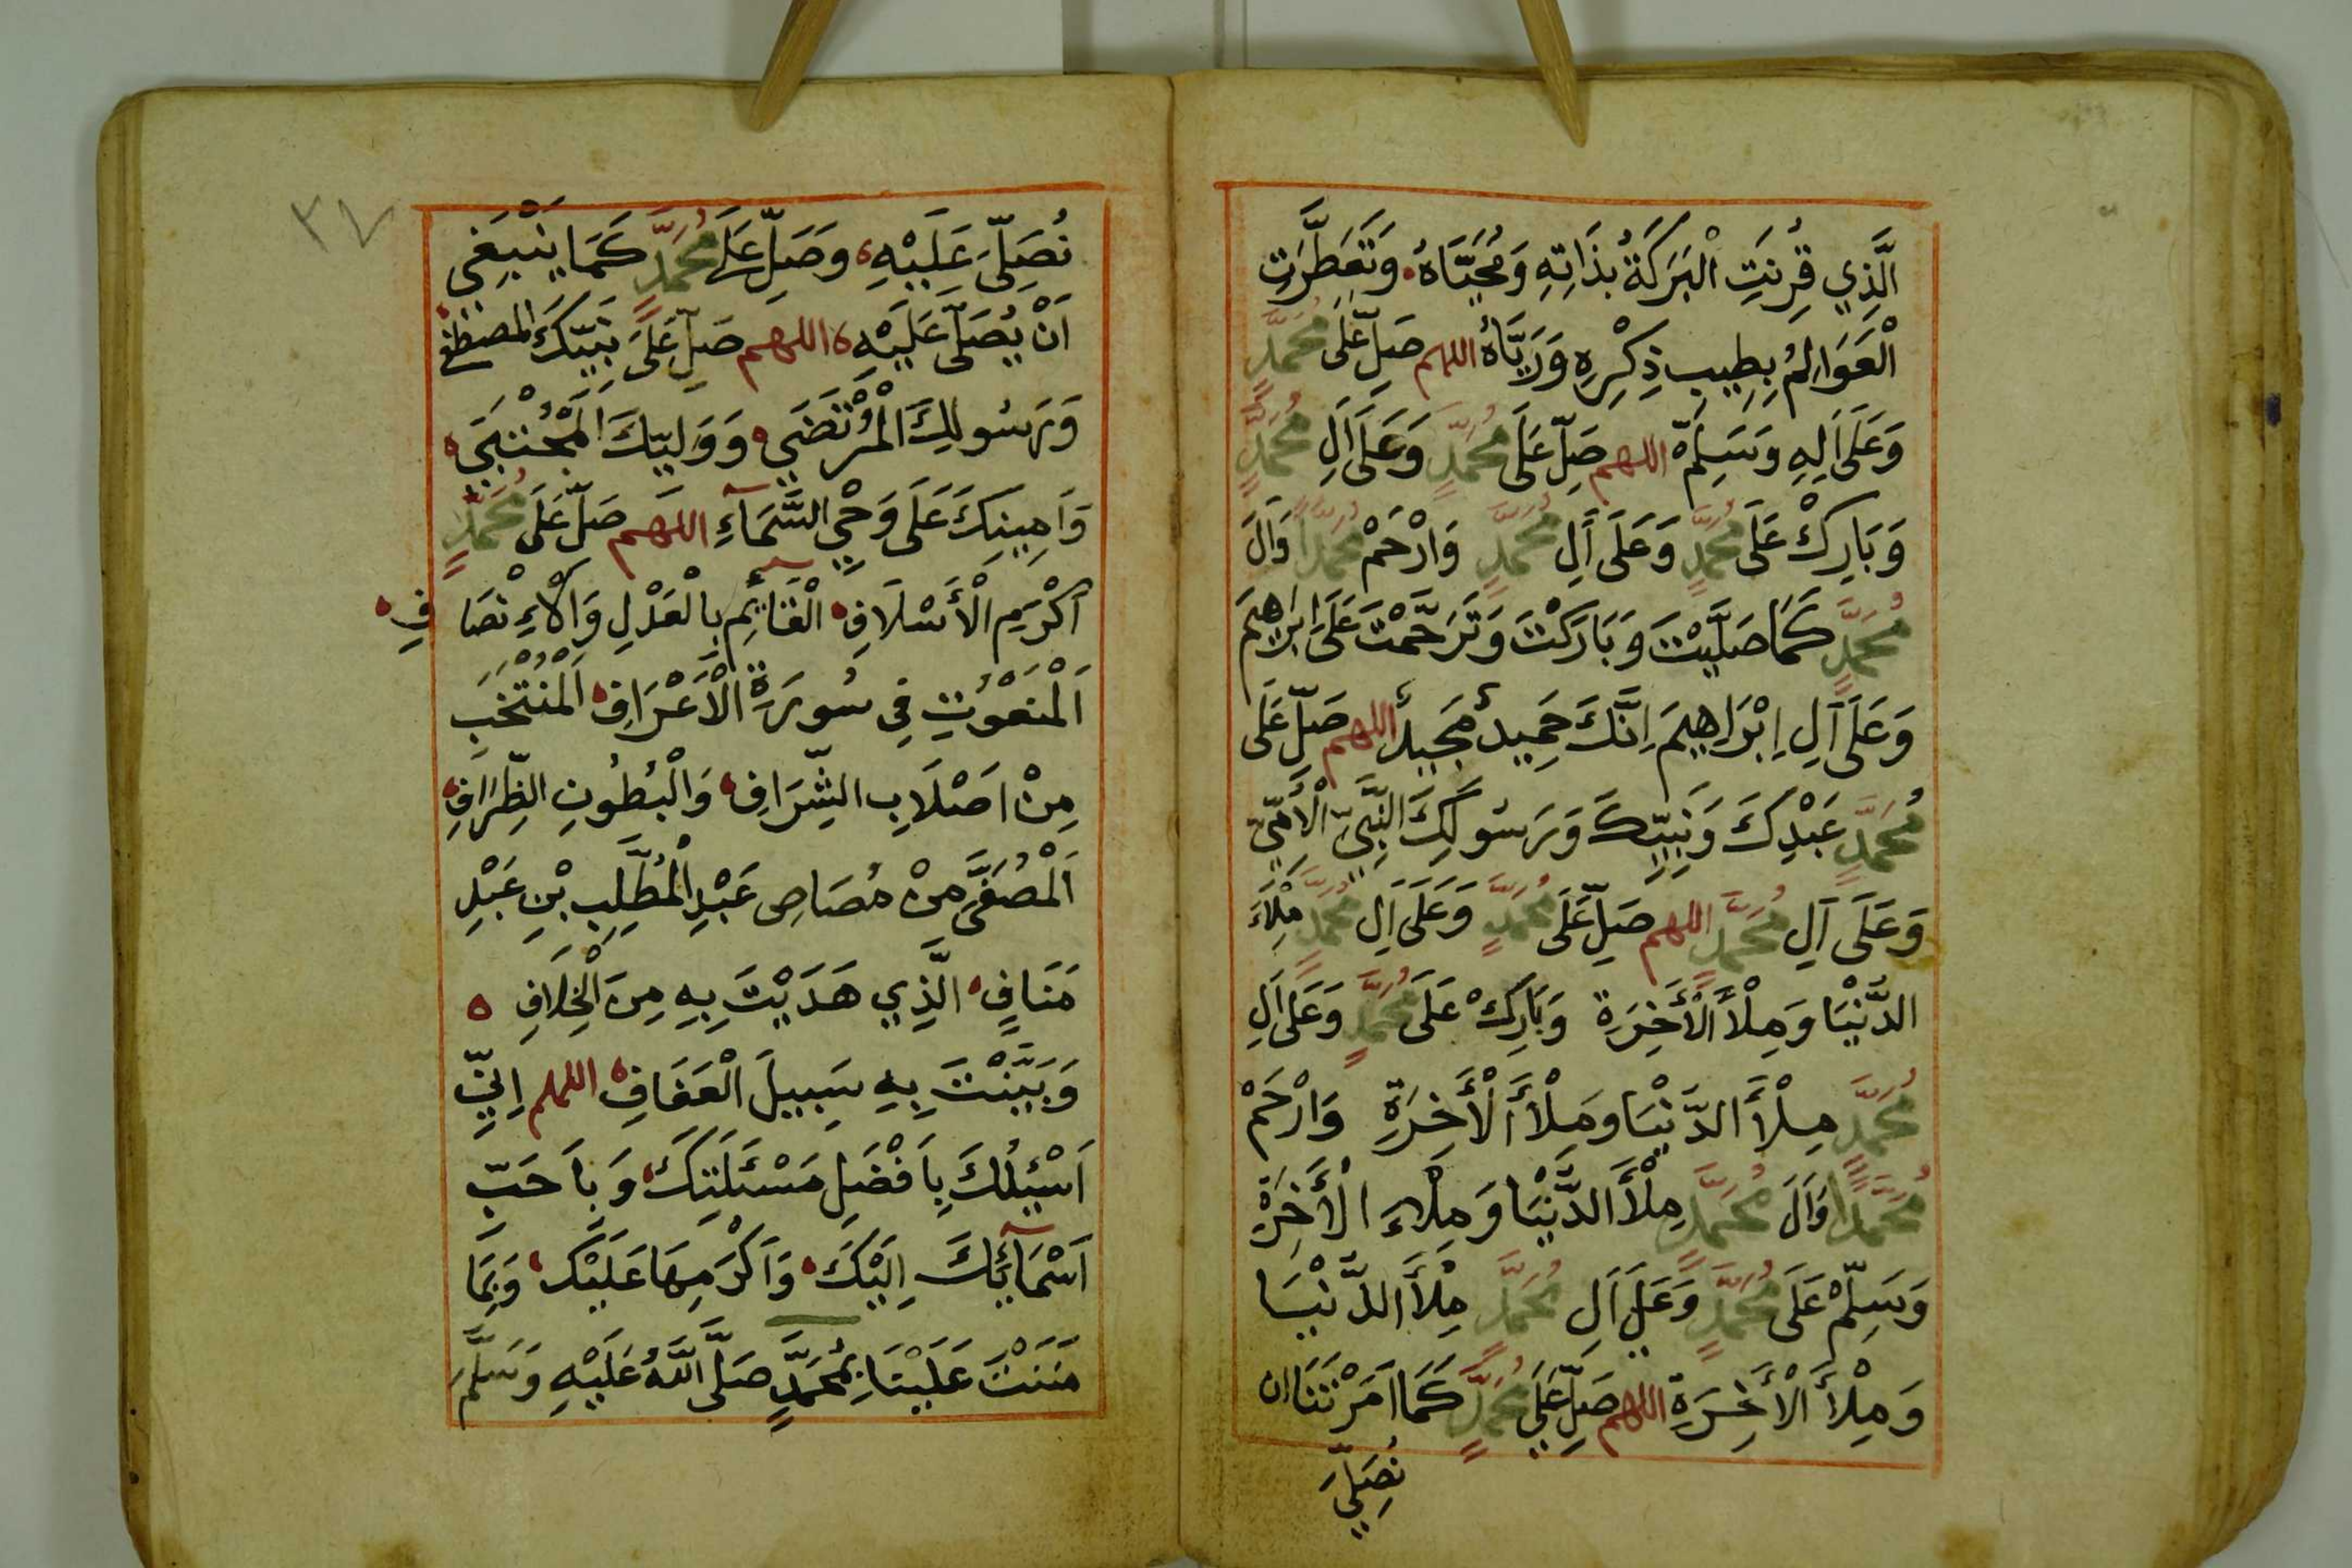 الَّذِي قُرِنَتِ الْبَرَكَةُ بِذَاتِهِ وَمُحَيَّاهُ وَتَعَطَّرَتِ
الْعَوَالِمُ بِطِيبِ ذِكْرِهِ وَرَيَّاهُ اللهم صَلِّ عَلَى مُحَمَّدٍ
وَعَلَى آلِهِ وَسَلِّمْ اللهم صَلِّ عَلَى مُحَمَّدٍ وَعَلَى آلِ مُحَمَّدٍ
وَبَارِكْ عَلَى مُحَمَّدٍ وَعَلَى آلِ مُحَمَّدٍ وَارْحَمْ مُحَمَّدًا وَآلَ
مُحَمَّدٍ كَمَا صَلَّيْتَ وَبَارَكْتَ وَتَرَحَّمْتَ عَلَى إِبْرَاهِيمَ
وَعَلَى آلِ إِبْرَاهِيمَ إِنَّكَ حَمِيدٌ مَجِيدٌ اللهم صَلِّ عَلَى
مُحَمَّدٍ عَبْدِكَ وَنَبِيِّكَ وَرَسُولِكَ النَّبِيِّ الْأُمِّيِّ
وَعَلَى آلِ مُحَمَّدٍ اللهم صَلِّ عَلَى مُحَمَّدٍ وَعَلَى آلِ مُحَمَّدٍ مِلْاءَ
الدُّنْيَا وَمِلْأَ الْأَخِرَةِ وَبَارِكْ عَلَى مُحَمَّدٍ وَعَلَى آلِ
مُحَمَّدٍ مِلْأَ الدُّنْيَا وَمِلْأَ الْأَخِرَةِ وَارْحَمْ
مُحَمَّدًا وَآلَ مُحَمَّدٍ مِلْأَ الدُّنْيَا وَمِلْاءَ الْأَخِرَةِ
وَسَلِّمْ عَلَى مُحَمَّدٍ وَعَلَى آلِ مُحَمَّدٍ مِلْأَ الدُّنْيَا
وَمِلْأَ الْأَخِرَةِ اللهم صَلِّ عَلَى مُحَمَّدٍ كَمَا اَمَرْتَنَا ان
نُصَلِّيَ
٣٧
نُصَلِّيَ عَلَيْهِ وَصَلِّ عَلَى مُحَمَّدٍ كَمَا يَنْبَغِي
اَنْ يُصَلَّى عَلَيْهِ اللهم صَلِّ عَلَى نَبِيِّكَ المصطفى
وَرَسُولِكَ الْمُرْتَضَى وَوَلِيِّكَ الْمُجْتَبَى
وَاَمِينِكَ عَلَى وَحْيِ السَّمَآءِ اللهم صَلِّ عَلَى مُحَمَّدٍ
اَكْرَمِ الْأَسْلَافِ الْقَآئِمِ بِالْعَدْلِ وَالْاِنْصَافِ
اَلْمَنْعُوتِ فِي سُورَةِ الْأَعْرَافِ اَلْمُنْتَخَبِ
مِنْ اَصْلَابِ الشِّرَافِ وَالْبُطُونِ الظِّرَافِ
اَلْمُصَفَّى مِنْ مُصَاصِ عَبْدِ الْمُطَّلِبِ بْنِ عَبْدِ
مَنَافٍ الَّذِي هَدَيْتَ بِهِ مِنَ الْخِلَافِ
وَبَيَّنْتَ بِهِ سَبِيلَ الْعَفَافِ اللهم اِنِّي
اَسْئَلُكَ بِاَفْضَلِ مَسْئَلَتِكَ وَبِاَحَبِّ
اَسْمَآئِكَ اِلَيْكَ وَاَكْرَمِهَا عَلَيْكَ وَبِمَا
مَنَنْتَ عَلَيْنَا بِمُحَمَّدٍ صَلَّى اللَّهُ عَلَيْهِ وَسَلَّمَ